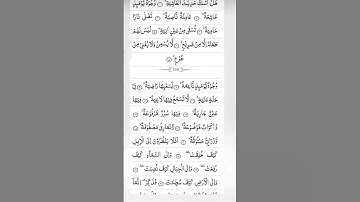 هَلْ أَتَىٰكَ حَدِيثُ الْغَاشِيَةِ ۝ وُجُوهٌ يَوْمَئِذٍ
خَاشِعَةٌ ۝ عَامِلَةٌ نَّاصِبَةٌ ۝ تَصْلَىٰ نَارًا
حَامِيَةً ۝ تُسْقَىٰ مِنْ عَيْنٍ آنِيَةٍ ۝ لَيْسَ لَهُمْ
طَعَامٌ إِلَّا مِنْ ضَرِيعٍ ۝ لَا يُسْمِنُ وَلَا يُغْنِي مِنْ
جُوعٍ ۝
وُجُوهٌ يَوْمَئِذٍ نَّاعِمَةٌ ۝ لِسَعْيِهَا رَاضِيَةٌ ۝ فِي
جَنَّةٍ عَالِيَةٍ ۝ لَا تَسْمَعُ فِيهَا لَاغِيَةً ۝ فِيهَا
عَيْنٌ جَارِيَةٌ ۝ فِيهَا سُرُرٌ مَرْفُوعَةٌ ۝
وَأَكْوَابٌ مَوْضُوعَةٌ ۝ وَنَمَارِقُ مَصْفُوفَةٌ ۝
وَزَرَابِيُّ مَبْثُوثَةٌ ۝ أَفَلَا يَنْظُرُونَ إِلَى الْإِبِلِ
كَيْفَ خُلِقَتْ ۝ وَإِلَى السَّمَاءِ كَيْفَ
رُفِعَتْ ۝ وَإِلَى الْجِبَالِ كَيْفَ نُصِبَتْ ۝
وَإِلَى الْأَرْضِ كَيْفَ سُطِحَتْ ۝ فَذَكِّرْ إِنَّمَا